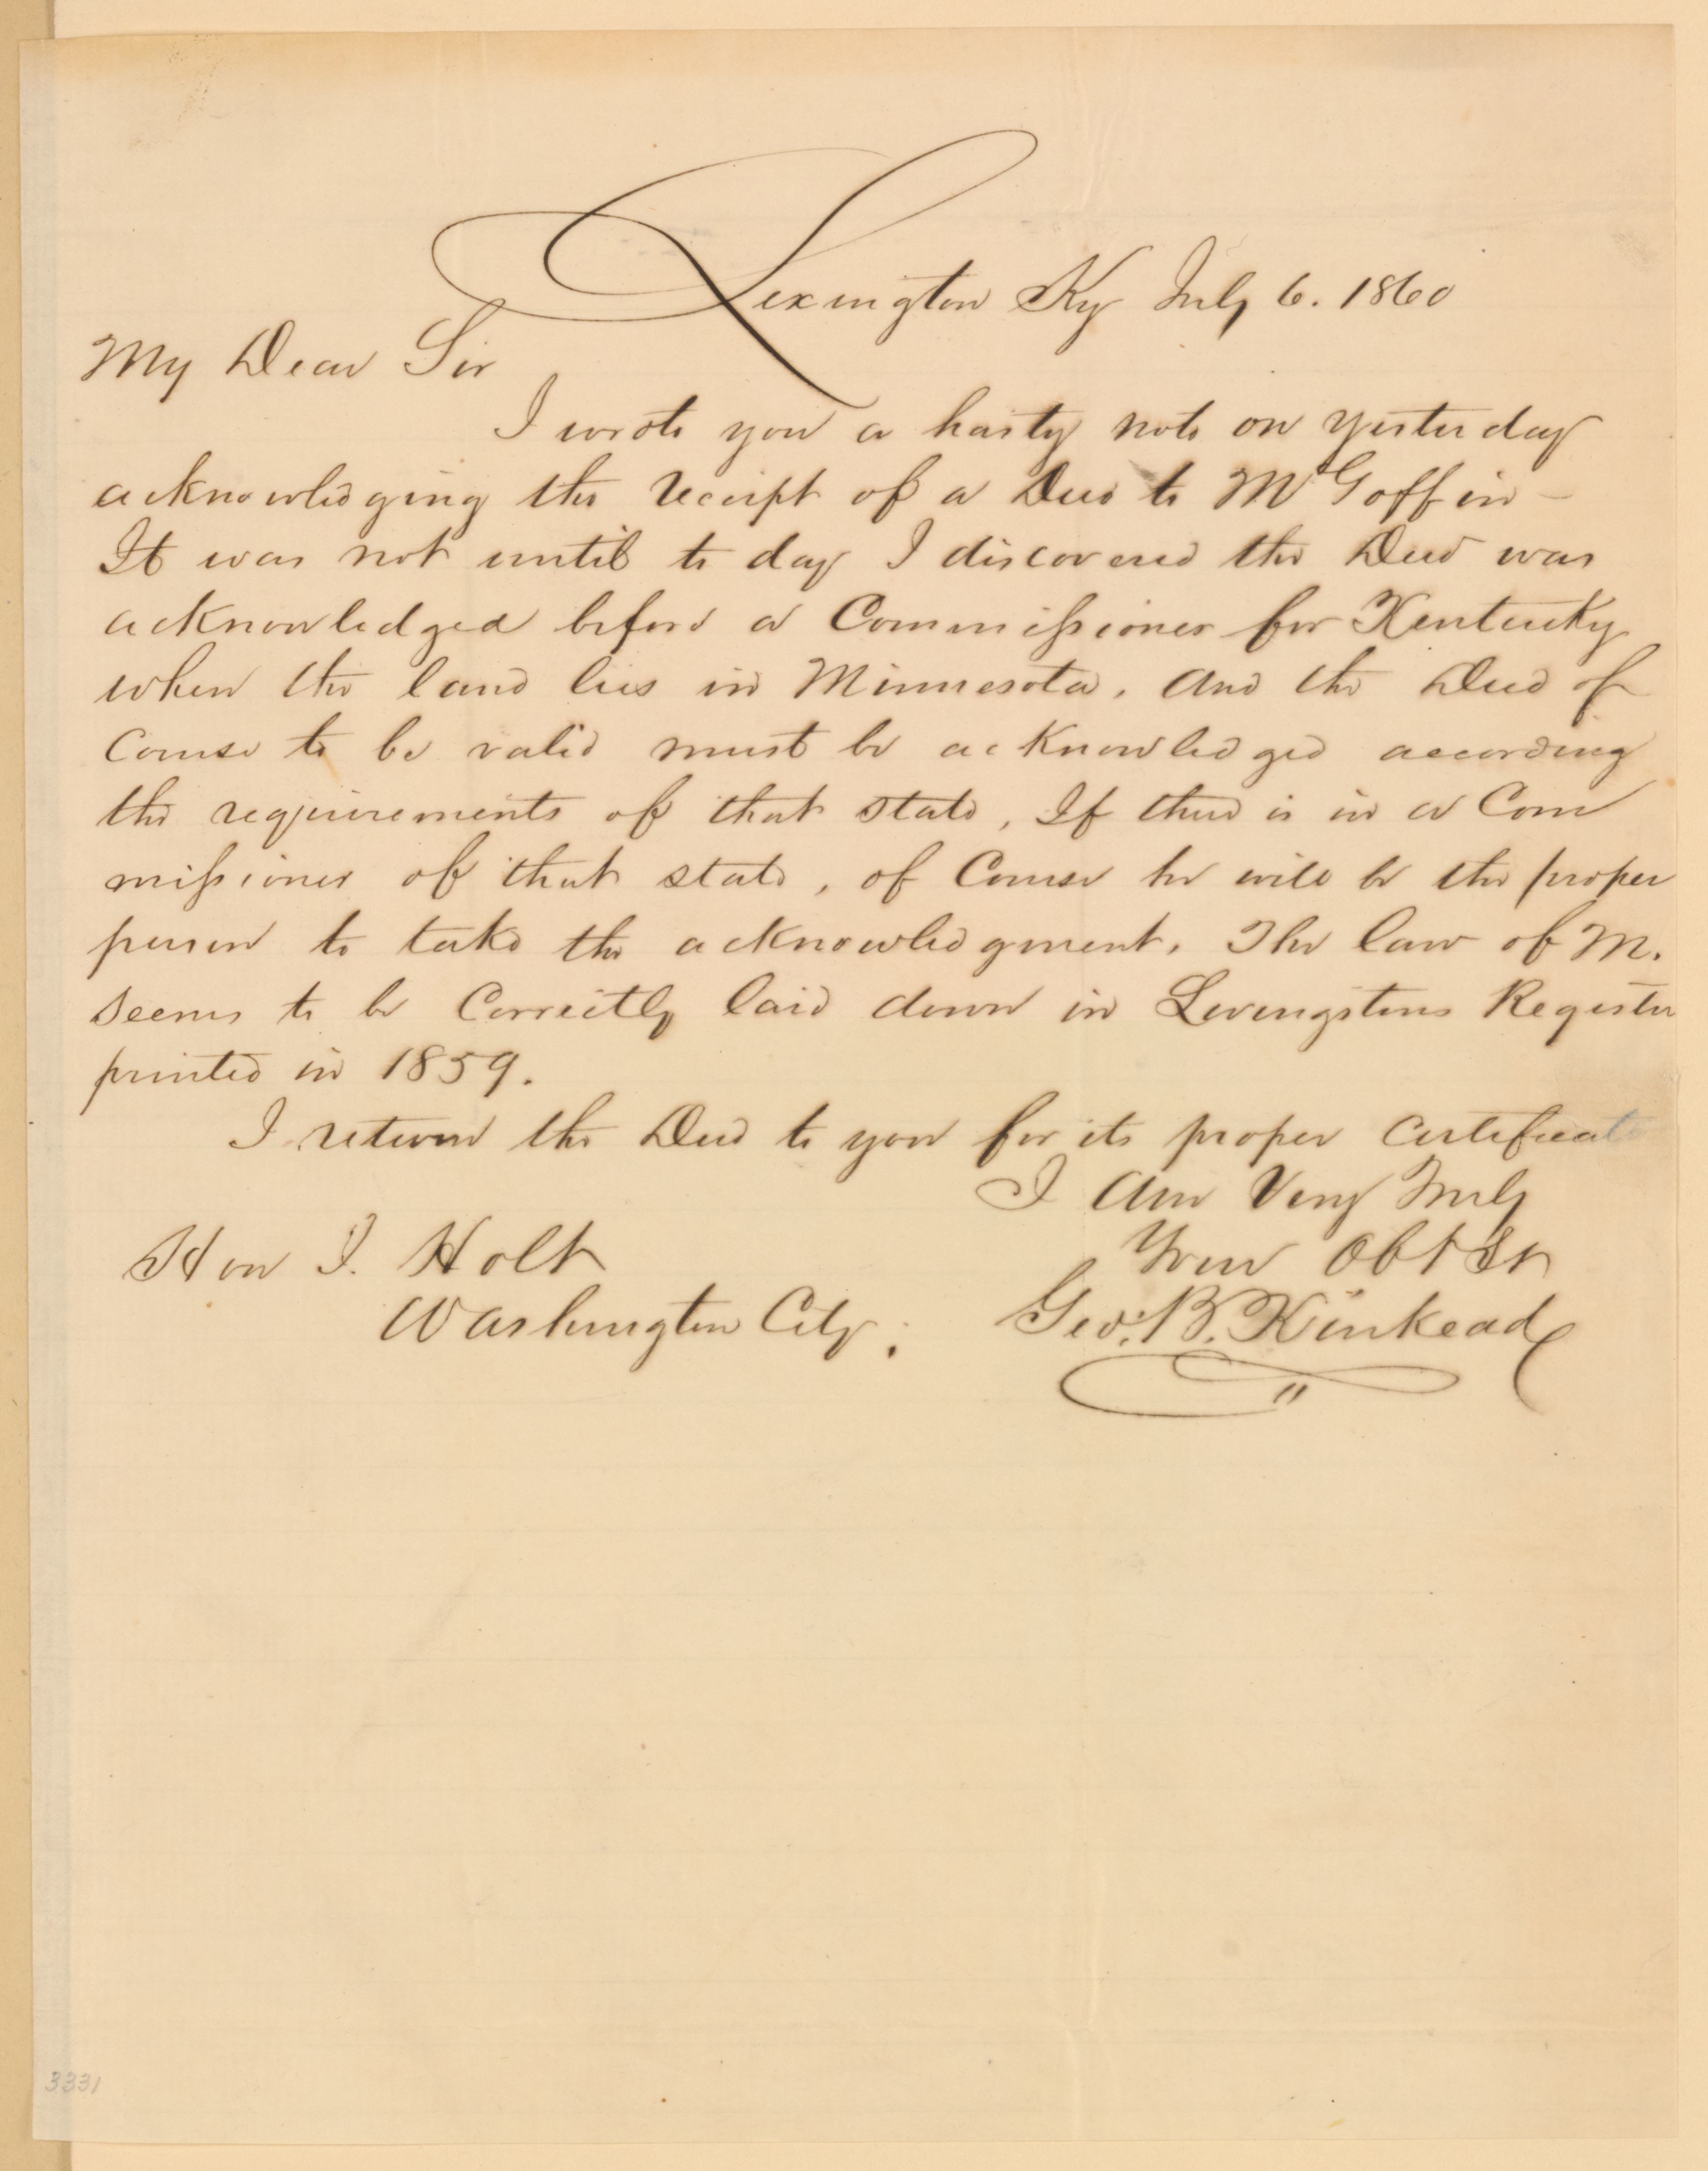 Lexington Ky July 6. 1860
My Dear Sir
I wrote you a hasty note on yesterday
acknowledging the receipt of a Deed to McGoffin -
It was not until to day I discovered the Deed was
acknowledged before a Commissioner for Kentucky
when the land lies in Minnesota. And the Deed of
Course to be valid must be acknowledged according
the requirements of that state, If there is in a Com
missioner of that state, of Course he will be the proper
person to take the acknowledgment. The law of M.
seems to be Correctly laid down in Livingstons Register
printed in 1859.
I return the Deed to you for its proper certificate
I Am Very Truly
Your Obt St
Hon J. Holt
Washington City.
Geo. B. Kinkead
3331